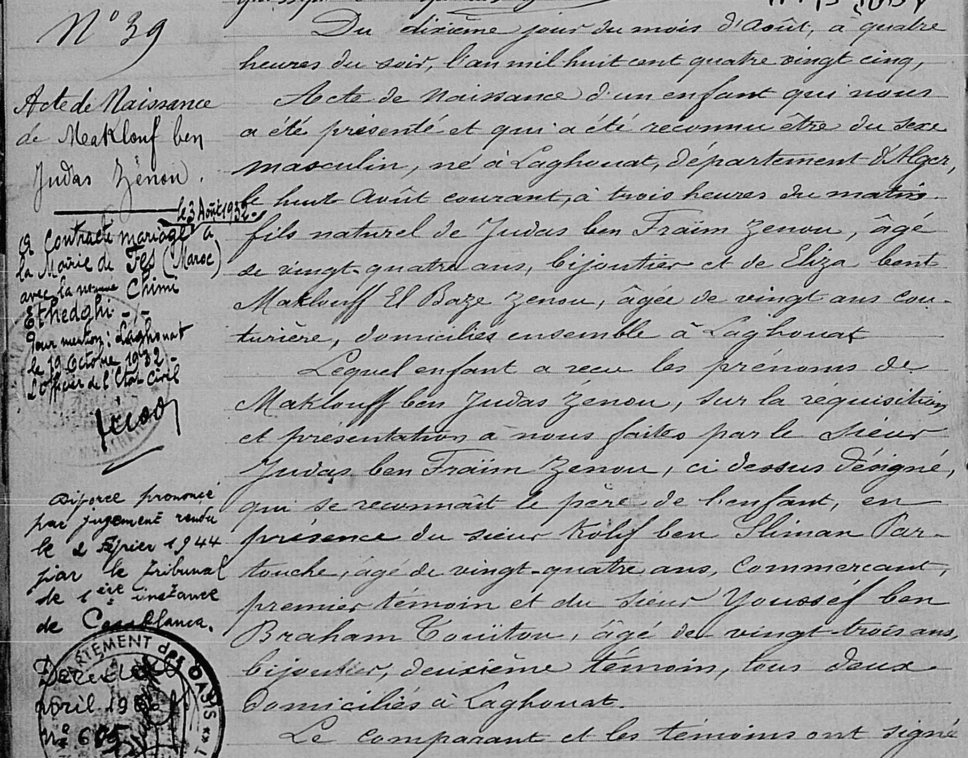 N° 39
Acte de Naissance
de Maklouf ben
Judas Zénou.
le 3 Août 1932.
a contracté mariage à
la Mairie de Fès (Maroc)
avec la nommée Chimi
Ethedghi -.-
Pour mention : Laghouat
le 19 Octobre 1932 -
L'officier de l'Etat Civil
Divorce prononcé
par jugement rendu
le 2 1944
par le Tribunal
de 1ère instance
de Casablanca.
avril
n° 605
DEPARTEMENT des OASIS
Du dixième jour du mois d'Août, à quatre
heures du soir, l'an mil huit cent quatre vingt cinq,
Acte de Naissance d'un enfant qui nous
a été présenté et qui a été reconnu être du sexe
masculin, né à Laghouat, département d'Alger,
le huit Août courant, à trois heures du matin
fils naturel de Judas ben Fraïm Zenou, âgé
de vingt-quatre ans, bijoutier et de Eliza bent
Maklouff El Baze Zenou, âgée de vingt ans cou-
turière, domiciliés ensemble à Laghouat
Lequel enfant a recu les prénoms de
Maklouff ben Judas Zénou, sur la réquisition
et présentation à nous faites par le sieur
Judas ben Fraïm Zenou, ci dessus désigné,
qui se reconnaît le père de l'enfant, en
présence du sieur Kolif ben Sliman Par-
touche, âgé de vingt-quatre ans, commerçant,
premier témoin et du sieur Youssef ben
Braham Touïtou, âgé de vingt-trois ans,
bijoutier, deuxième témoin, tous deux
domiciliés à Laghouat.
Le comparant et les témoins ont signé